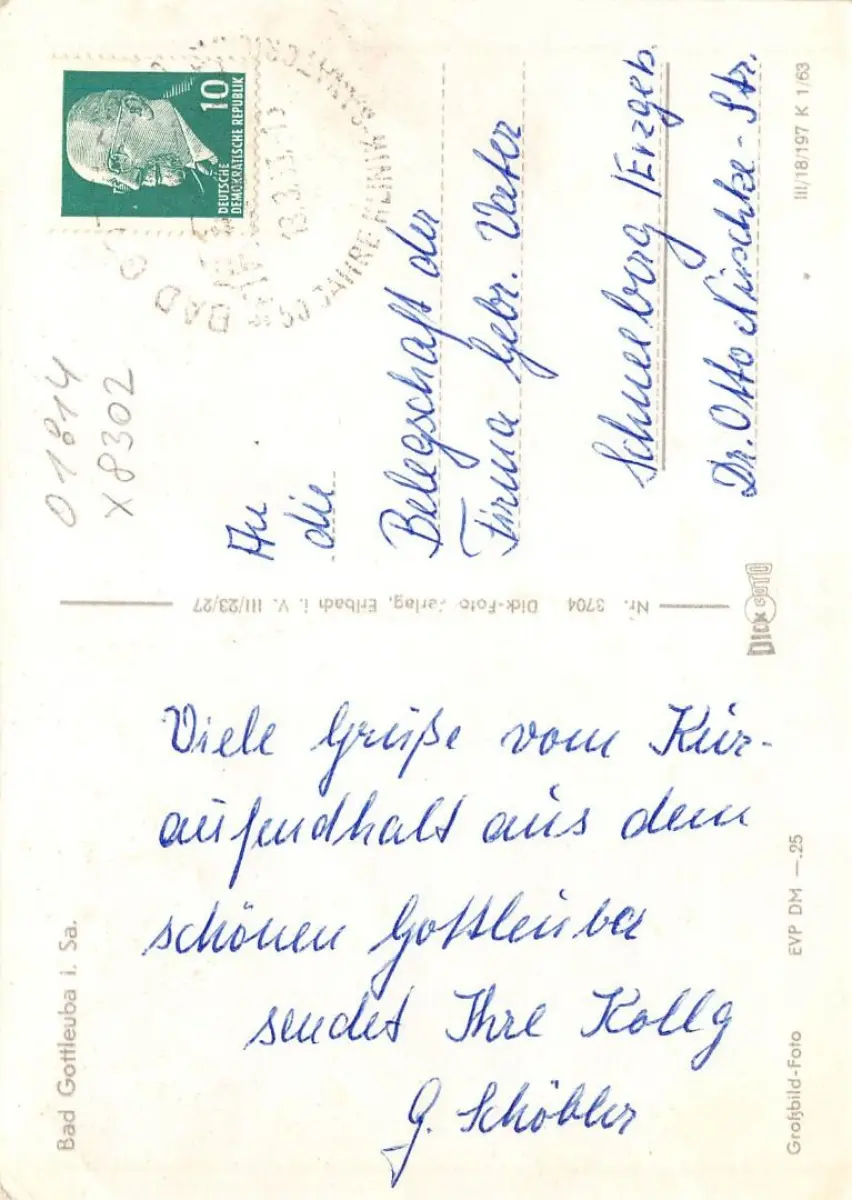 Bad Gottleuba i. Sa.
Viele Grüße vom Kur-
aufendhalt aus dem
schönen Gottleuba
sendet Ihre Kollg
G. Schöbler
Großbild-Foto
EVP DM —.25
Nr. 3704 Dick-Foto Verlag, Erlbach i. V. III/23/27
DICK FOTO
10
DEUTSCHE
DEMOKRATISCHE REPUBLIK
BAD
50 JAHRE KLINIK-SANAT
01814
X8302
An
die
Belegschaft der
Firma Gebr. Vater
Schneeberg /Erzgeb.
Dr. Otto Nuschke-Str.
III/18/197 K 1/63